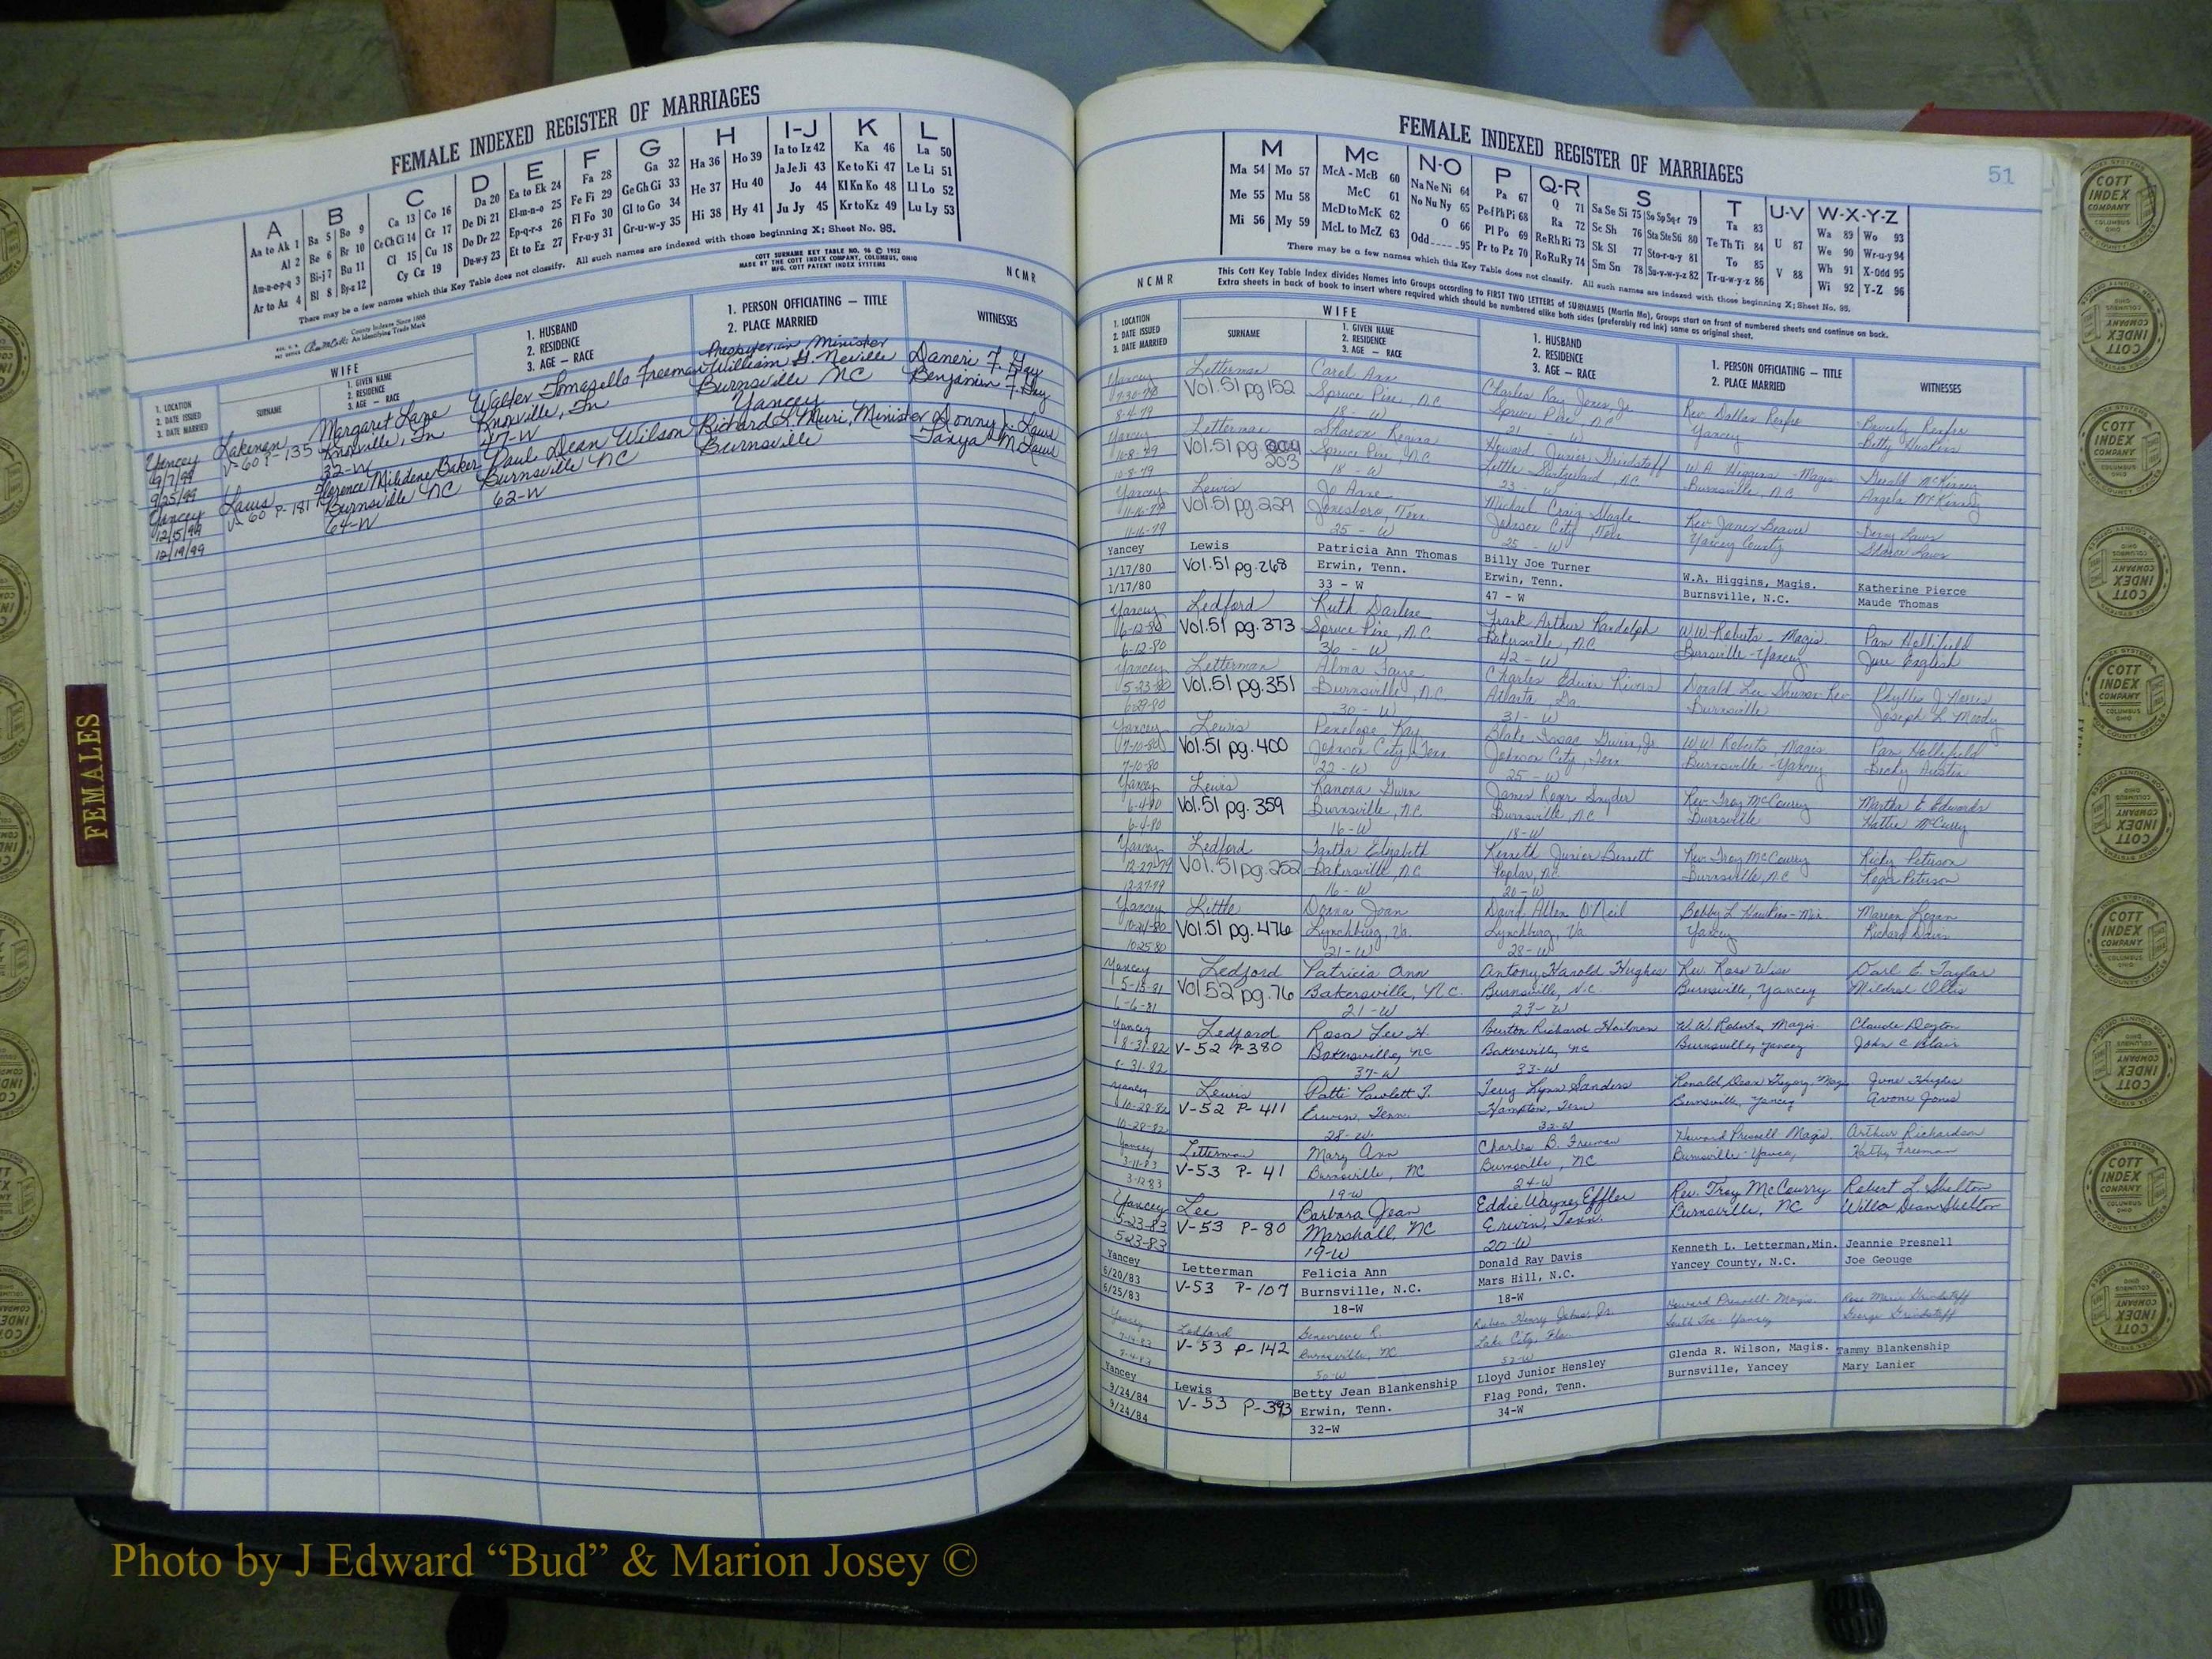 FEMALE INDEXED REGISTER OF MARRIAGES
A
Aa to Ak 1
Al 2
Am-n-o-p-q 3
Ar to Az 4
B
Ba 5
Be 6
Bi-j-7
Bl 8
Bo 9
Br 10
Bu 11
By-z 12
C
Ca 13
Ce Ch Ci 14
Cl 15
Cy Cz 19
Co 16
Cr 17
Cu 18
D
Da 20
De Di 21
Do Dr 22
Du-w-y 23
E
Ea to Ek 24
El-m-n-o 25
Ep-q-r-s 26
Et to Ez 27
F
Fa 28
Fe Fi 29
Fl Fo 30
Fr-u-y 31
G
Ga 32
Ge Gh Gi 33
Gl to Go 34
Gr-u-w-y 35
H
Ha 36
He 37
Hi 38
Ho 39
Hu 40
Hy 41
I-J
Ia to Iz 42
Ja Je Ji 43
Jo 44
Ju Jy 45
K
Ka 46
Ke to Ki 47
Kl Kn Ko 48
Kr to Kz 49
L
La 50
Le Li 51
Ll Lo 52
Lu Ly 53
There may be a few names which this Key Table does not classify. All such names are indexed with those beginning X; Sheet No. 95.
COTT SURNAME KEY TABLE NO. 96 © 1953
MADE BY THE COTT INDEX COMPANY, COLUMBUS, OHIO
MFG. COTT PATENT INDEX SYSTEMS
NCMR
County Indexes Since 1888
An Identifying Trade Mark
WIFE
1. LOCATION
2. DATE ISSUED
3. DATE MARRIED
SURNAME
1. GIVEN NAME
2. RESIDENCE
3. AGE — RACE
1. HUSBAND
2. RESIDENCE
3. AGE — RACE
1. PERSON OFFICIATING — TITLE
2. PLACE MARRIED
WITNESSES
Yancey Lakeman Margaret Lane Walter Tomasello Freeman Presbyterian Minister William G. Neville
9/7/99 V-60 P-135 Knoxville, Tn Knoxville, Tn Burnsville NC Benjamin F. Gay
9/25/99 32-W 47-W Yancey
Yancey Laws Florence Mildene Baker Paul Dean Wilson Richard L. Muri, Minister Donny L. Laws
12/5/99 V-60 P-181 Burnsville NC Burnsville NC Burnsville Tanya M Laws
12/19/99 64-W 62-W
FEMALES
FEMALE INDEXED REGISTER OF MARRIAGES
51
M
Ma 54
Me 55
Mi 56
Mo 57
Mu 58
My 59
Mc
McA - McB 60
McC 61
McD to McK 62
McL to McZ 63
N-O
Na Ne Ni 64
No Nu Ny 65
O 66
Odd 95
P
Pa 67
Pe-f Ph Pi 68
Pl Po 69
Pr to Pz 70
Q-R
Q 71
Ra 72
Re Rh Ri 73
Ro Ru Ry 74
S
Sa Se Si 75
Sc Sh 76
Sk Sl 77
Sm Sn 78
So Sp Sq-r 79
Sta Ste Sti 80
Sto-r-u-y 81
Su-v-w-y-z 82
T
Ta 83
Te Th Ti 84
To 85
Tr-u-w-y-z 86
U-V
U 87
V 88
W-X-Y-Z
Wa 89
We 90
Wh 91
Wi 92
Wo 93
Wr-u-y 94
X-Odd 95
Y-Z 96
There may be a few names which this Key Table does not classify. All such names are indexed with those beginning X; Sheet No. 95.
NCMR
This Cott Key Table Index divides Names into Groups according to FIRST TWO LETTERS of SURNAMES (Martin Ma), Groups start on front of numbered sheets and continue on back.
Extra sheets in back of book to insert where required which should be numbered alike both sides (preferably red ink) same as original sheet.
WIFE
1. LOCATION
2. DATE ISSUED
3. DATE MARRIED
SURNAME
1. GIVEN NAME
2. RESIDENCE
3. AGE — RACE
1. HUSBAND
2. RESIDENCE
3. AGE — RACE
1. PERSON OFFICIATING — TITLE
2. PLACE MARRIED
WITNESSES
Yancey Letterman Carol Ann Charles Ray Jones, Jr.
7-30-79 Vol. 51 pg 152 Spruce Pine, N.C. Spruce Pine, NC Yancey
8-4-79 18 - W 21 W
Yancey Letterman Sharon Regina Howard Junior Grindstaff W.A. Higgins - Magis. Gerald McKinney
10-8-79 Vol.51 pg. 203 Spruce Pine, NC Little Switzerland, NC Burnsville, N.C. Angela McKinney
10-8-79 18 - W 23 - W
Yancey Lewis Jo Anne Michael Craig Rev. James Beaver
11-16-79 Vol.51 pg.229 Jonesboro, Tenn Johnson City, Tenn Yancey County
11-16-79 25 - W 25 - W
Yancey Lewis Patricia Ann Thomas Billy Joe Turner W.A. Higgins, Magis. Katherine Pierce
1/17/80 Vol.51 pg.268 Erwin, Tenn. Erwin, Tenn. Burnsville, N.C. Maude Thomas
1/17/80 33 - W 47 - W
Yancey Ledford Ruth Darlene Frank Arthur Randolph W.W. Roberts - Magis. Pam Hollifield
6-12-80 Vol.51 pg.373 Spruce Pine, N.C. Bakersville, N.C. Burnsville - Yancey June English
6-12-80 36 - W 42 - W
Yancey Letterman Alma Faye Charles Edwin Rivers
5-23-80 Vol.51 pg.351 Burnsville, N.C. Atlanta, Ga. Burnsville Joseph L. Moody
6-29-80 30 - W 31 - W
Yancey Lewis Penelope Kay W.W. Roberts, Magis. Pam Hollifield
7-10-80 Vol.51 pg.400 Johnson City, Tenn Johnson City, Tenn Burnsville - Yancey Becky Austin
7-10-80 22 - W 25 - W
Yancey Lewis Ranona Gwen James Roger Snyder Rev. Troy McCourry Martha E. Edwards
6-4-80 Vol.51 pg.359 Burnsville, N.C. Burnsville, N.C. Burnsville Hattie McCurry
6-4-80 16-W 18-W
Yancey Ledford Elizabeth Kenneth Junior Bennett Rev. Troy McCourry Ricky Peterson
12-27-79 Vol.51 pg.252 Bakersville, N.C. Poplar, N.C. Burnsville, N.C. Roger Peterson
12-27-79 16 - W 20 - W
Yancey Little Donna Jean David Allen O'Neil Bobby L. Hawkins - Min. Marion Logan
10-24-80 Vol.51 pg.476 Lynchburg, Va. Lynchburg, Va Yancey Richard Davis
10-25-80 21 - W 28 - W
Yancey Ledford Patricia Ann Antony Harold Hughes Rev. Rose Wise Darl E. Taylor
5-15-81 Vol 52 pg.76 Bakersville, N.C. Burnsville, N.C. Burnsville, Yancey Mildred Ollis
6-6-81 21-W 23-W
Yancey Ledford Rosa Lee H Burton Richard Hoilman W.W. Roberts, Magis. Claude Dayton
8-31-82 V-52 P-380 Bakersville, NC Bakersville, NC Burnsville, Yancey John C Blair
8-31-82 37-W 33-W
Yancey Lewis Patti Pawlett T. Terry Lynn Sanders June Hughes
10-28-82 V-52 P-411 Erwin, Tenn. Hampton, Tenn Burnsville, Yancey Avone Jones
10-28-82 28-W 32-W
Yancey Letterman Mary Ann Charles B. Freeman Howard Presnell Magis. Arthur Richardson
3-11-83 V-53 P-41 Burnsville, NC Burnsville, NC Burnsville-Yancey Kathy Freeman
3-12-83 19-W 24-W
Yancey Lee Barbara Jean Eddie Wayne Effler Rev. Troy McCourry Robert L. Shelton
5-23-83 V-53 P-80 Marshall, NC Erwin, Tenn. Burnsville, NC Willa Dean Shelton
5-23-83 19-W 20-W
Yancey Letterman Felicia Ann Donald Ray Davis Kenneth L. Letterman, Min. Jeannie Presnell
6/20/83 V-53 P-107 Burnsville, N.C. Mars Hill, N.C. Yancey County, N.C. Joe Geouge
6/25/83 18-W 18-W
Yancey Ledford Genevieve R. Howard Presnell-Magis. Rose Marie Grindstaff
V-53 P-142 Burnsville, NC Lake City, Fla. South Toe-Yancey George Grindstaff
50-W 52-W
Yancey Lewis Betty Jean Blankenship Lloyd Junior Hensley Glenda R. Wilson, Magis. Tammy Blankenship
9/24/84 V-53 P-393 Erwin, Tenn. Flag Pond, Tenn. Burnsville, Yancey Mary Lanier
9/24/84 32-W 34-W
COTT INDEX COMPANY COLUMBUS OHIO
Photo by J Edward “Bud” & Marion Josey ©